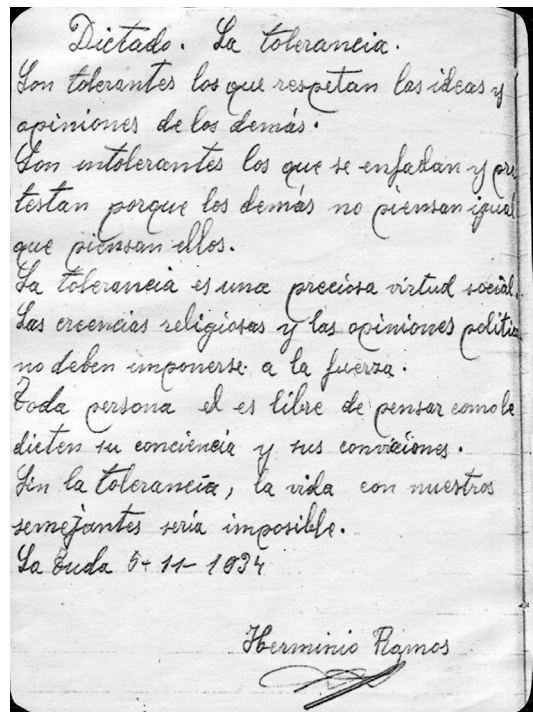 Dictado. La tolerancia.
Son tolerantes los que respetan las ideas y
opiniones de los demás.
Son intolerantes los que se enfadan y pro
testan porque los demás no piensan igual
que piensan ellos.
La tolerancia es una preciosa virtud social.
Las creencias religiosas y las opiniones politica
no deben imponerse a la fuerza.
Toda persona el es libre de pensar como le
dicten su conciencia y sus convicciones.
Sin la tolerancia, la vida con nuestros
semejantes sería imposible.
La Tuda 5-11-1934
Herminio Ramos